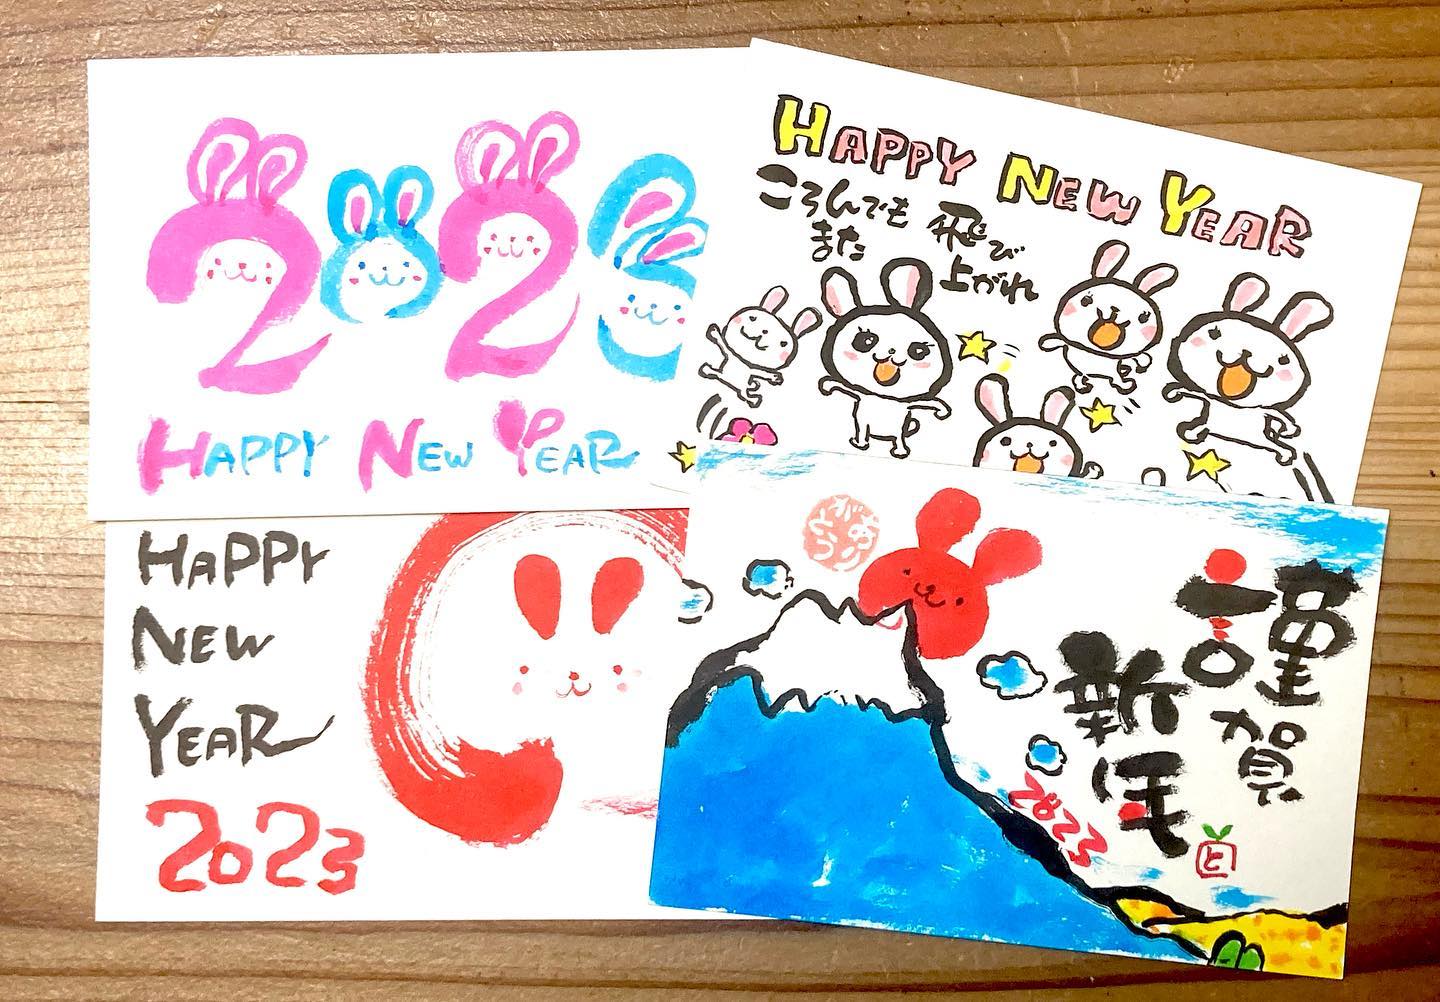 2023
HAPPY NEW YEAR
HAPPY NEW YEAR
ころんでも
また
飛び
上がれ
HAPPY
NEW
YEAR
2023
謹賀
新年
2023
と